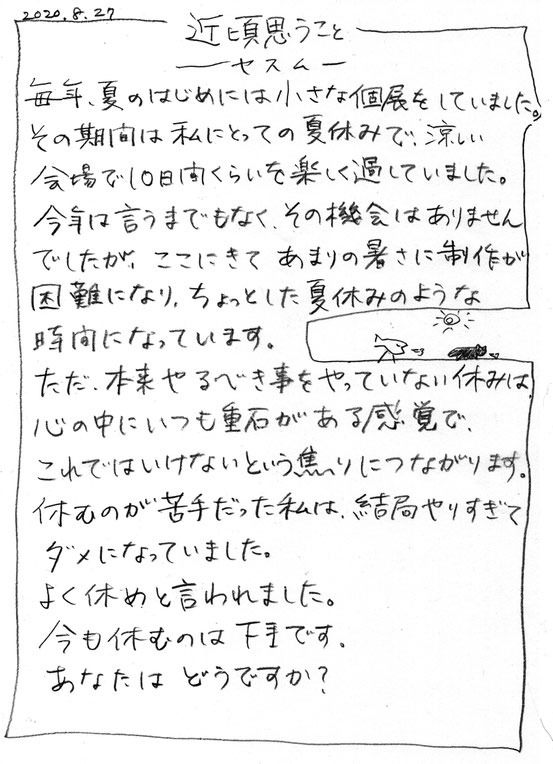 2020.8.27
近頃思うこと
ーヤスムー
毎年、夏のはじめには小さな個展をしていました。
その期間は私にとっての夏休みで、涼しい
会場で10日間くらいを楽しく過していました。
今年は言うまでもなく、その機会はありません
でしたが、ここにきて あまりの暑さに制作が
困難になり、ちょっとした夏休みのような
時間になっています。
ただ、本来やるべき事をやっていない休みは、
心の中にいつも重石がある感覚で、
これではいけないという焦りにつながります。
休むのが苦手だった私は、結局やりすぎて
ダメになっていました。
よく休めと言われました。
今も休むのは下手です。
あなたは どうですか？